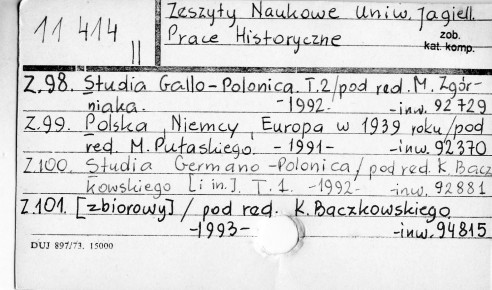 11 414 II
Zeszyty Naukowe Uniw. Jagiell.
Prace Historyczne
zob.
kat. komp.
Z.98. Studia Gallo-Polonica. T.2/pod red. M. Zgór-
niaka. -1992- -inw. 92729
Z.99. Polska, Niemcy, Europa w 1939 roku/pod
red. M. Pułaskiego. -1991- -inw. 92370
Z.100. Studia Germano-Polonica/pod red. K. Bacz
kowskiego [i in.]. T.1. -1992- -inw. 92881
Z.101. [zbiorowy] / pod red. K. Baczkowskiego.
-1993- -inw. 94815
DUJ 897/73. 15000